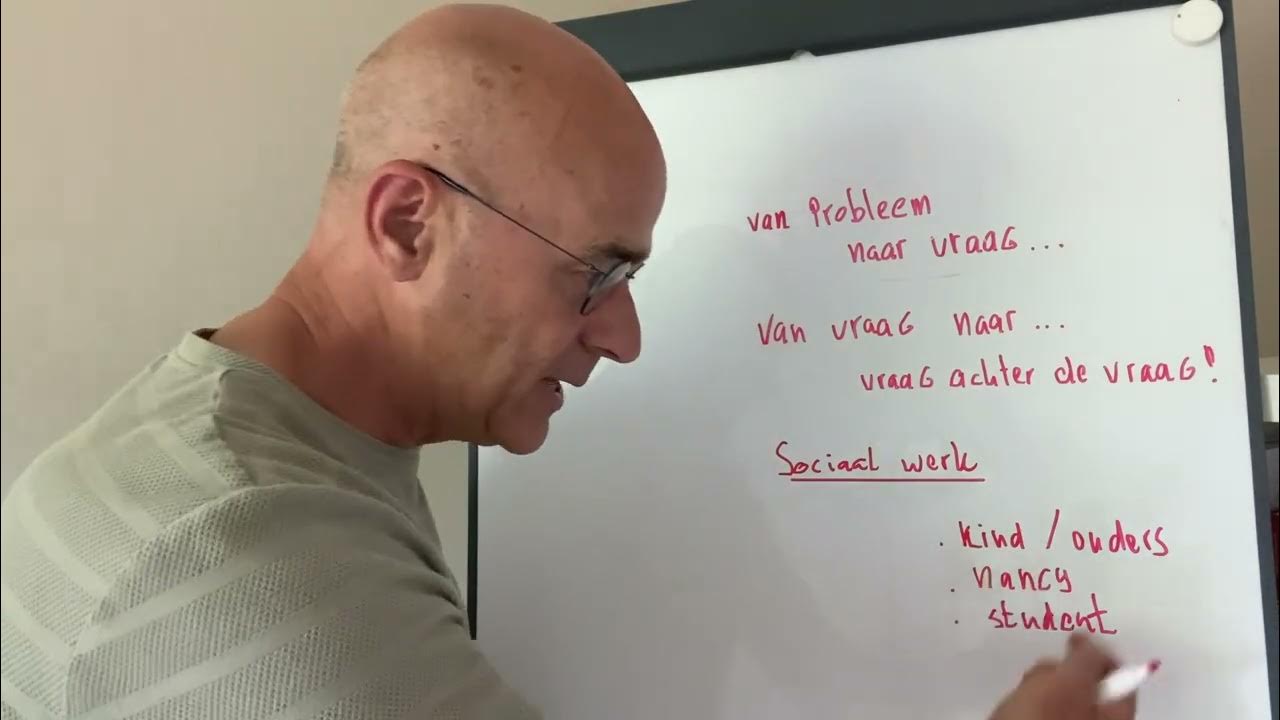 van Probleem
naar vraag...
Van vraag naar...
vraag achter de vraag!
Sociaal werk
. kind / ouders
. nancy
. student